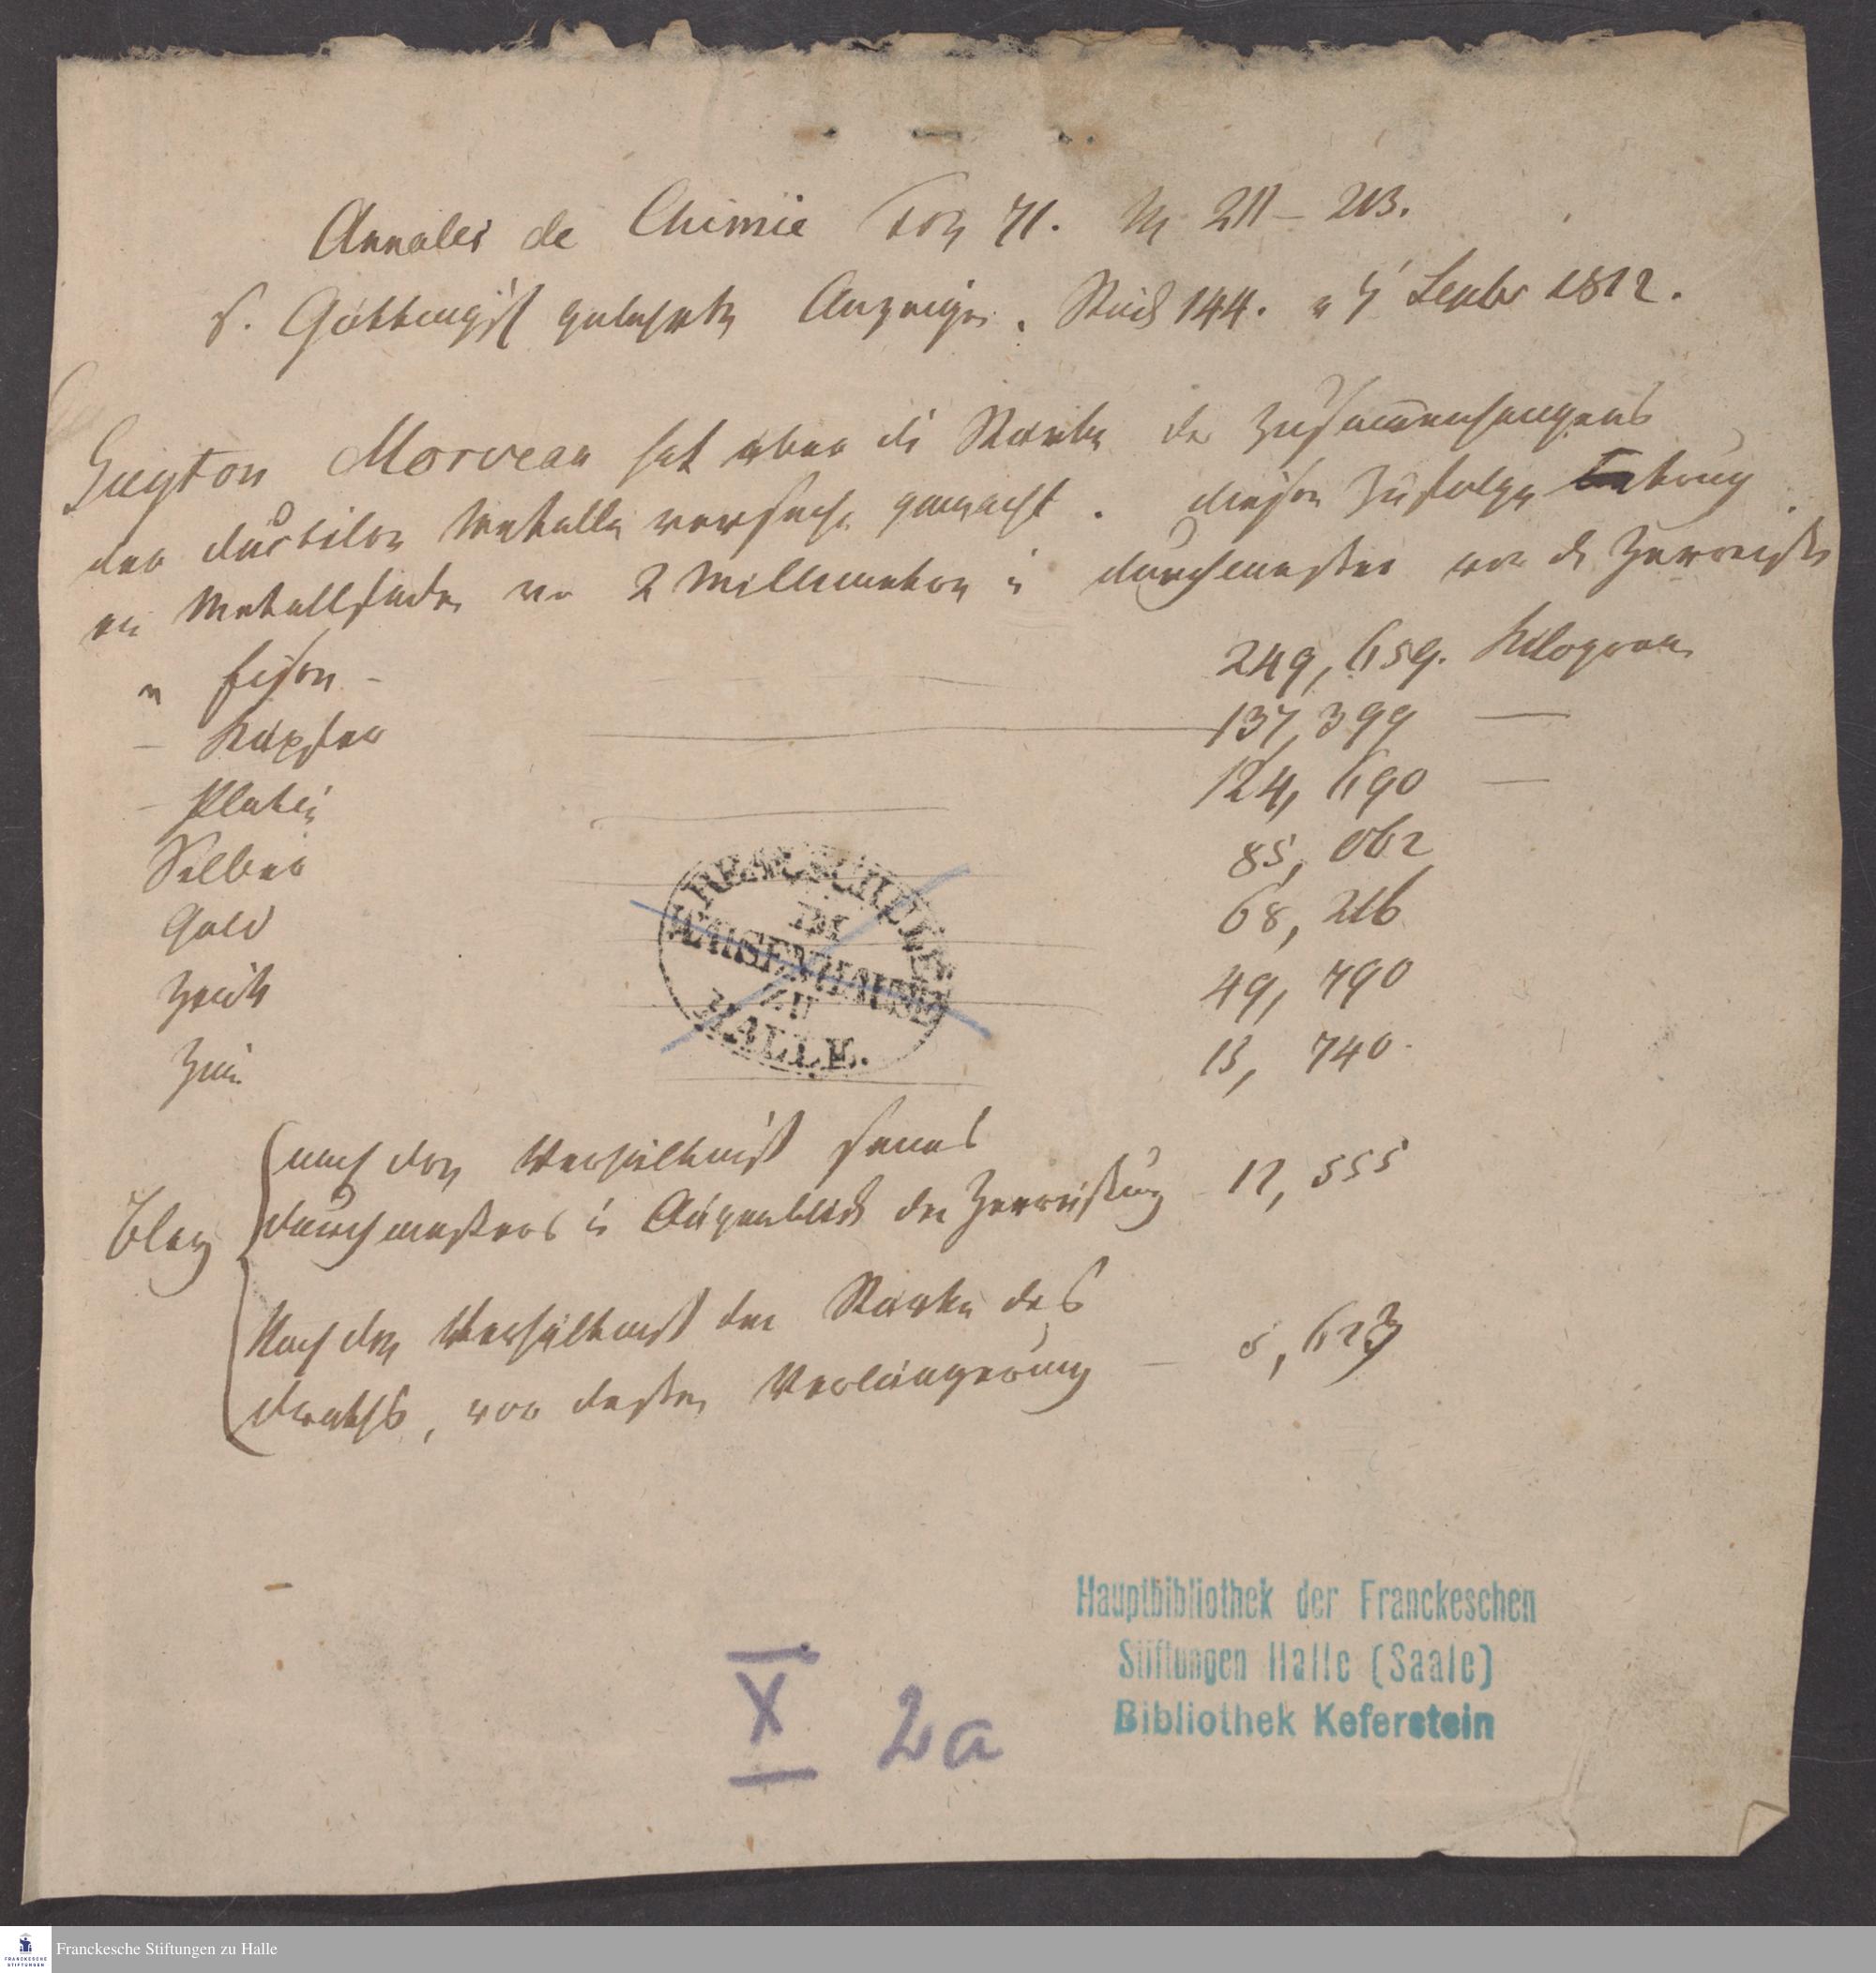 Annales de Chimie Tom 71. No 211 – 213.
S. Göttingisch gelehrte Anzeigen. Stück 144. Septbr 1812.
Guyton Morveau hat über die Stärke des Zusammenhangens
der ductilen Metalle versuche gemacht. diesen Zufolge trug
ein Metallfaden von 2 Millimetern in durchmesser vor dem Zerreißen
v Eisen – 249,659. Kilogram
– Kupfer 137,399 —
– Platin 124,690 —
Silber 85,062
Gold 68,216
Zink 49,790
Zinn 13,740.
Bley
nach dem Verhältniß seines
durchmessers im Augenblick der Zerreißung 12,555
Nach dem Verhältniß der Stärke des
draths, vor dessen Verlängerung – 5,623
REALSCHULE
IM
WAISENHAUSE
ZU
HALLE.
Hauptbibliothek der Franckeschen
Stiftungen Halle (Saale)
Bibliothek Keferstein
X 2a
FRANCKESCHE
STIFTUNGEN
Franckesche Stiftungen zu Halle